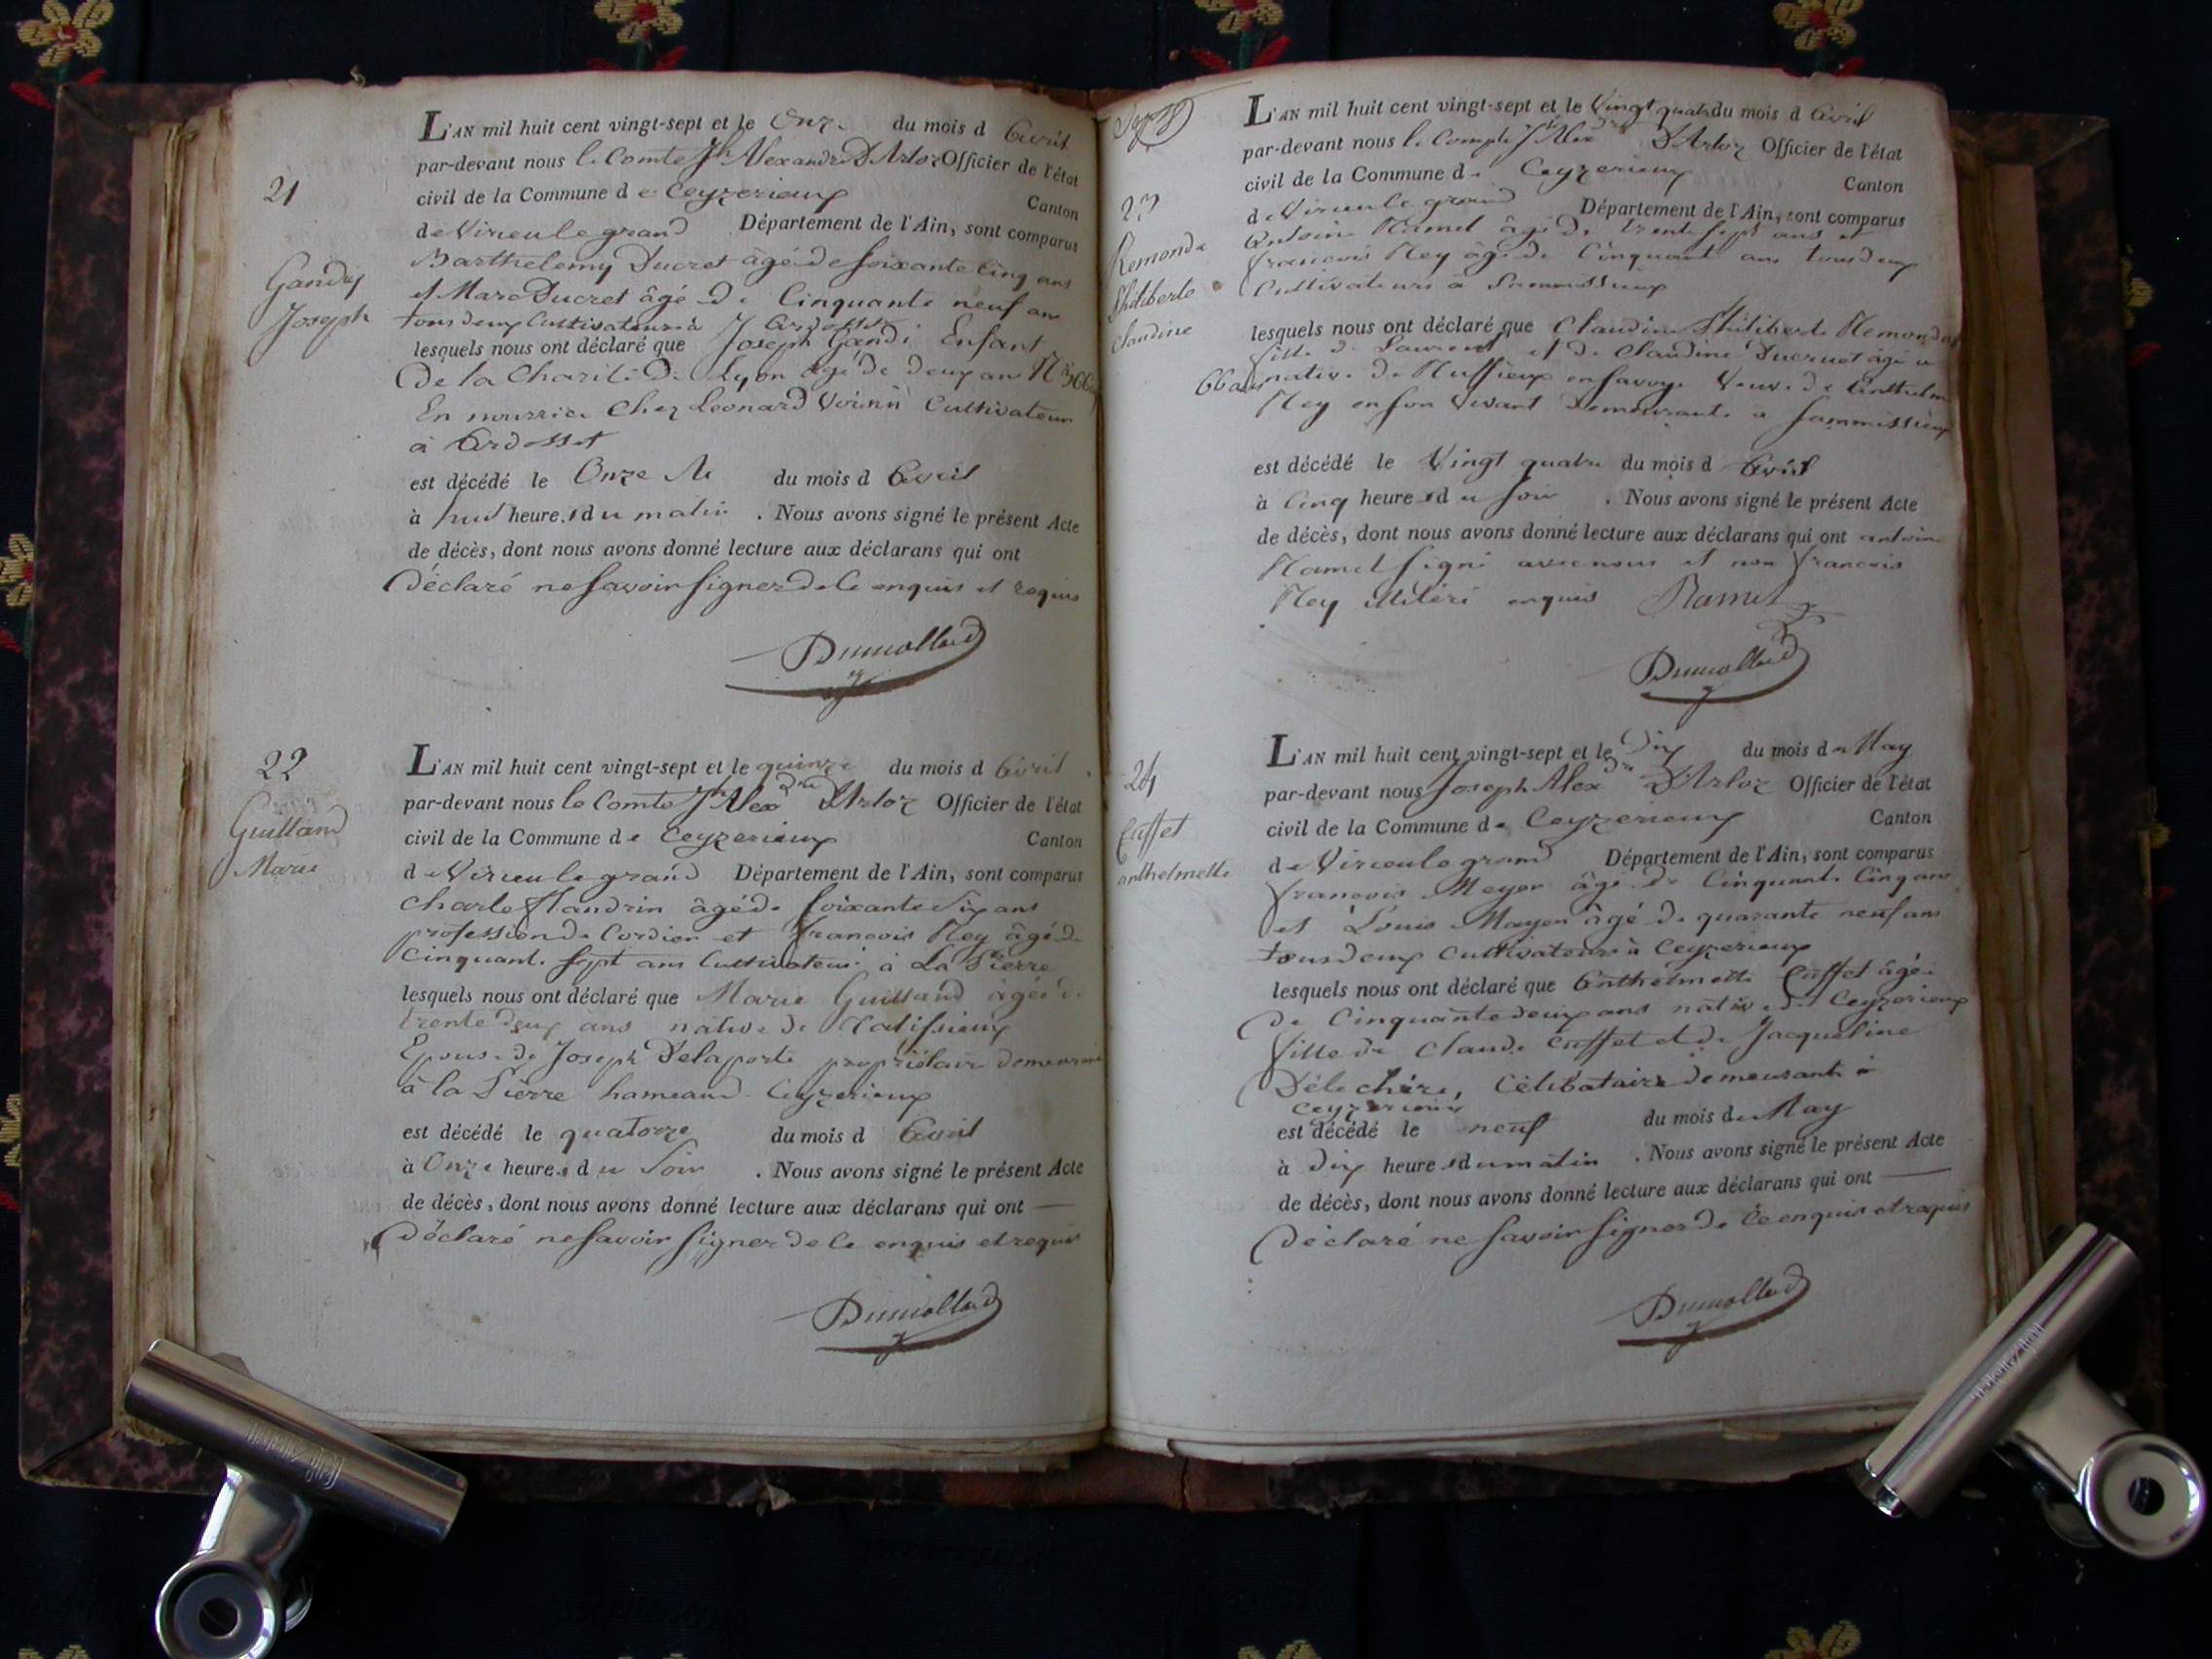 21
Gandy
Joseph
L'AN mil huit cent vingt-sept et le Onze du mois d Avril
par-devant nous le Comte Jh Alexandre D'Arloz Officier de l'état
civil de la Commune d e Ceyzerieux Canton
de Virieu le grand Département de l'Ain, sont comparus
Barthelemy Ducret âgé de soixante cinq ans
et Marc Ducret âgé de Cinquante neuf ans
tous deux Cultivateurs à Ardosset
lesquels nous ont déclaré que Joseph Gandi Enfant
De la Charité de Lyon âgé de deux ans
En nourrice Chez Leonard Cultivateur
à Ardosset
est décédé le Onze du mois d Avril
à huit heures du matin . Nous avons signé le présent Acte
de décès, dont nous avons donné lecture aux déclarans qui ont
Déclaré ne savoir signer de Ce enquis et requis
Dumollard
22
Guilland
Marie
L'AN mil huit cent vingt-sept et le quinze du mois d Avril
par-devant nous le Comte Jh Alexdre D'Arloz Officier de l'état
civil de la Commune d e Ceyzerieux Canton
d e Virieu le grand Département de l'Ain, sont comparus
Charle Flandrin âgé de soixante Six ans
profession de Cordier et francois Rey âgé de
Cinquante sept ans Cultivateur à La Pierre
lesquels nous ont déclaré que Marie Guilland âgée de
trente deux ans native de Talissieux
Epouse de Joseph Delaporte propriétaire demeurant
à la Pierre hameau de Ceyzerieux
est décédé le quatorze du mois d Avril
à Onze heures d u Soir . Nous avons signé le présent Acte
de décès, dont nous avons donné lecture aux déclarans qui ont
Déclaré ne savoir signer de Ce enquis et requis
Dumollard
23
Remonde
Philiberte
Claudine
L'AN mil huit cent vingt-sept et le Vingt quatre du mois d Avril
par-devant nous le Compte Jh Alexdre D'Arloz Officier de l'état
civil de la Commune d e Ceyzerieux Canton
d e Virieu le grand Département de l'Ain, sont comparus
Antoine Ramel âgé de trente sept ans et
francois Rey âgé de Cinquante ans tous deux
Cultivateurs à Sammissieux
lesquels nous ont déclaré que Claudine Philiberte Remonde
fille de Laurent et de Claudine Ducruet âgé de
66 ans native de Ruffieux en Savoye Veuve de Anthelme
Rey en son vivant Demeurante à Sammissieux
est décédé le Vingt quatre du mois d Avril
à Cinq heures d u soir . Nous avons signé le présent Acte
de décès, dont nous avons donné lecture aux déclarans qui ont antoine
Ramel signé avec nous et non francois
Rey illiteré enquis Ramel
Dumollard
24
Cuffet
anthelmette
L'AN mil huit cent vingt-sept et le Dix du mois d e May
par-devant nous Joseph Alexdre D'Arloz Officier de l'état
civil de la Commune d e Ceyzerieux Canton
d e Virieu le grand Département de l'Ain, sont comparus
francois Meyer âgé de Cinquante Cinq ans
et Louis Mayen âgé de quarante neuf ans
tous deux Cultivateurs à Ceyzerieux
lesquels nous ont déclaré que Anthelmette Cuffet âgée
De Cinquante deux ans native de Ceyzerieux
fille de Claude Cuffet et de Jacqueline
Déléchère, Célibataire demeurante à
Ceyzerieux
est décédé le neuf du mois de May
à Dix heures du matin . Nous avons signé le présent Acte
de décès, dont nous avons donné lecture aux déclarans qui ont
Déclaré ne savoir signer de Ce enquis et requis
Dumollard